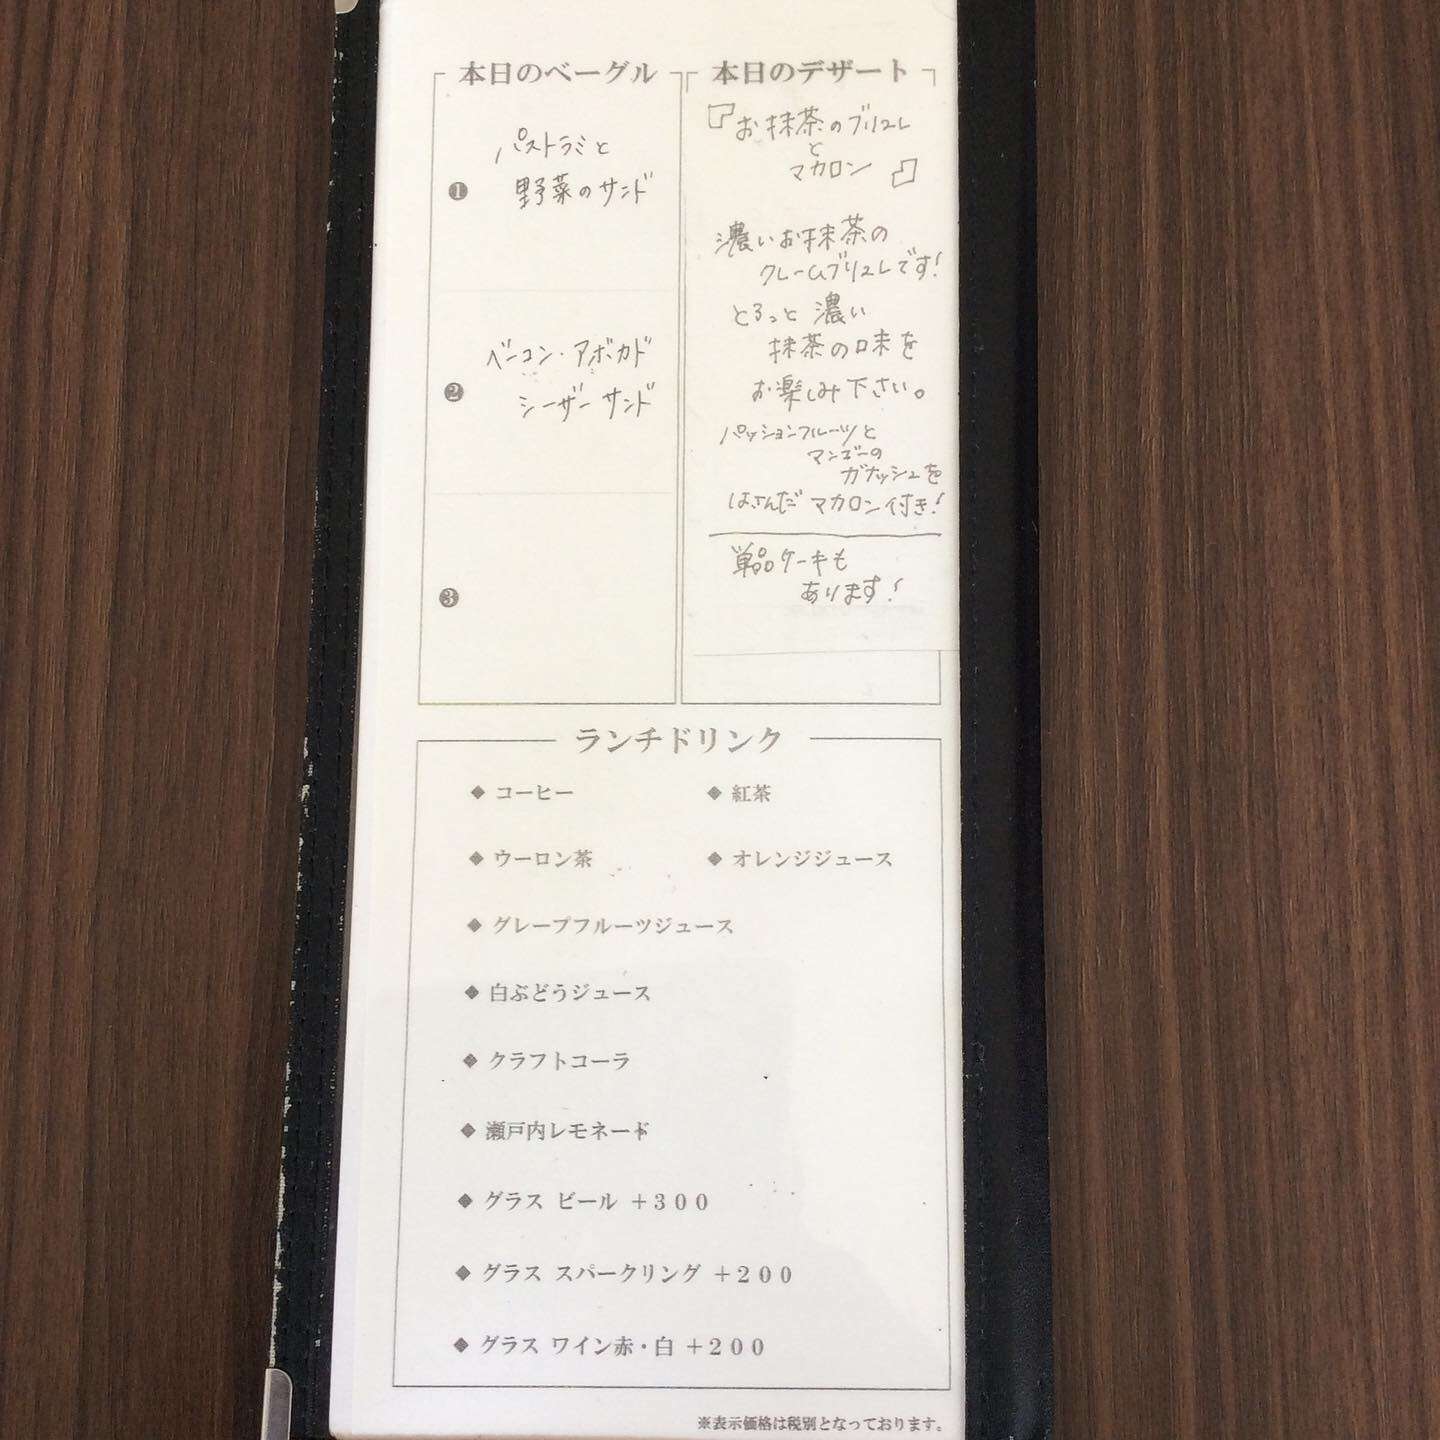 本日のベーグル
❶
パストラミと
野菜のサンド
❷
ベーコン・アボカド
シーザーサンド
❸
本日のデザート
『お抹茶のブリュレ
と
マカロン』
濃いお抹茶の
クレームブリュレです!
とろっと濃い
抹茶の味を
お楽しみ下さい。
パッションフルーツと
マンゴーの
ガナッシュを
はさんだマカロン付き!
単品ケーキも
あります!
ランチドリンク
◆ コーヒー
◆ 紅茶
◆ ウーロン茶
◆ オレンジジュース
◆ グレープフルーツジュース
◆ 白ぶどうジュース
◆ クラフトコーラ
◆ 瀬戸内レモネード
◆ グラス ビール +300
◆ グラス スパークリング +200
◆ グラス ワイン赤・白 +200
※表示価格は税別となっております。